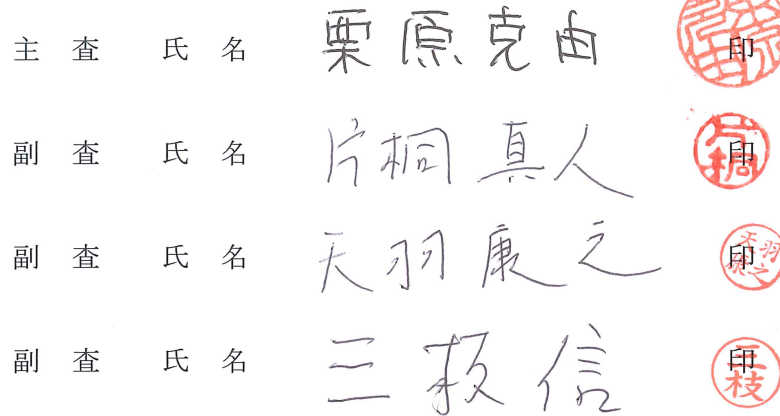 主 査 氏 名 栗原克由 印
副 査 氏 名 片桐 真人 印 片桐
副 査 氏 名 天羽康之 印 天羽康之
副 査 氏 名 三枝 信 印 三枝